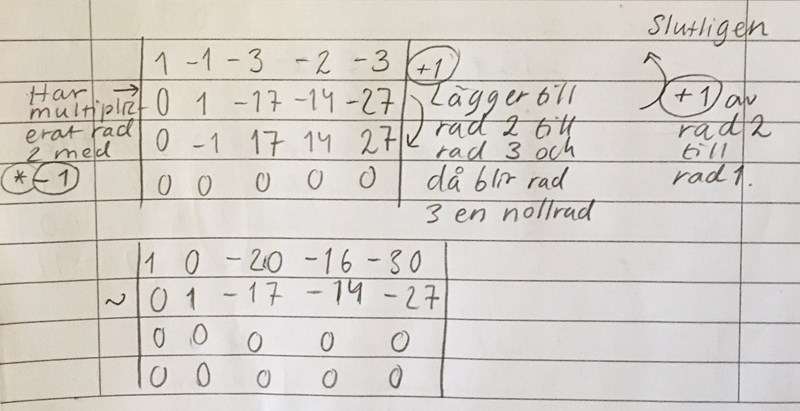 Slutligen
1 -1 -3 -2 -3 +1
Har multipliz- 0 1 -17 -14 -27 Lägger till +1 av
erat rad 0 -1 17 14 27 rad 2 till rad 2
2 med rad 3 och till
* -1 0 0 0 0 0 då blir rad rad 1.
3 en nollrad
1 0 -20 -16 -30
~ 0 1 -17 -14 -27
0 0 0 0 0
0 0 0 0 0